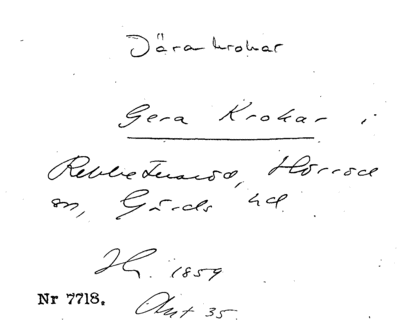 Järakrokar
Gera Krokar i
Rebbetuaröd, Hörröd
sn, Gärds hd
Jh. 1859
Nr 7718. Ant 35